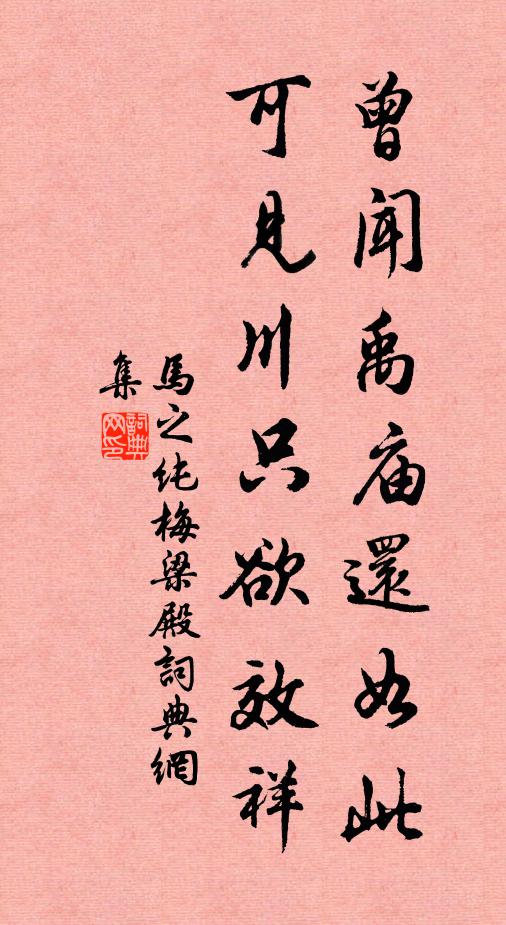 曾聞禹庙還如此
可見川只欲效祥
馬之純梅梁殿詞典網
集
詞典网印